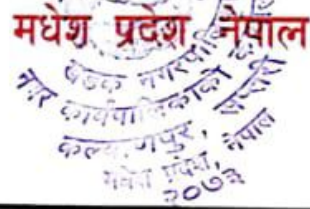 मधेश प्रदेश नेपाल
खडक नगरपालिका
नगर कार्यपालिकाको
कल्याणपुर, सप्तरी
मधेश प्रदेश, नेपाल
२०७३